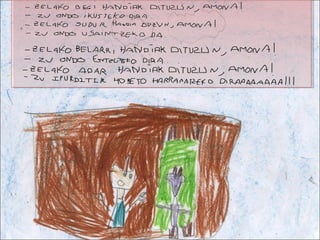 - ZELAKO BEGI HANDIAK DITUZUN, AMONA!
- ZU ONDO IKUSTEKO DIRA
- ZELAKO SUDUR HANDIA DUZUN, AMONA!
- ZU ONDO USAINTZEKO DA
- ZELAKO BELARRI HANDIAK DITUZUN, AMONA!
- ZU ONDO ENTZUTEKO DIRA
- ZELAKO ADAR HANDIAK DITUZUN AMONA!
- ZU IPURDITIK HARRAPATZEKO DIRAAAAAAA!!!